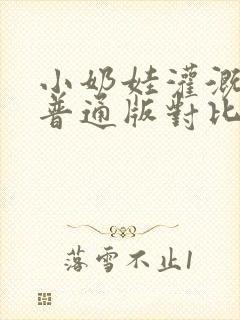 小奶娃灌溉
普通版對比
落雪不止1